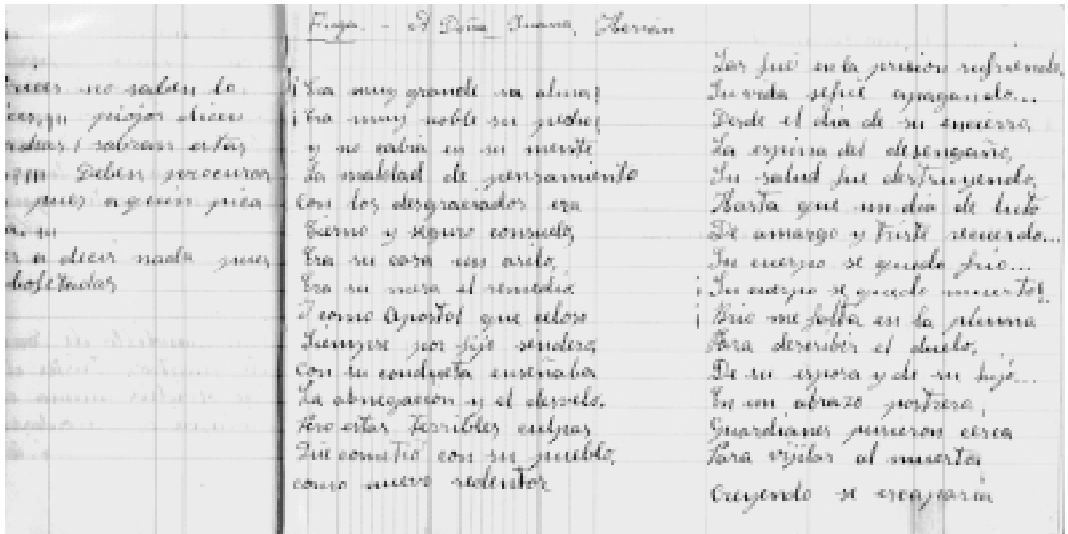 no saben lo
piojos dicen
sabran estas
Deben procurar
pues a quien pica
a decir nada pues
bofetadas
Fuga. - A Doña Juana, Herrán
¡Era muy grande su alma;
¡Era muy noble su pecho;
y no cabia en su mente
La maldad de pensamiento
Con los desgraciados era
Tierno y seguro consuelo,
Era su casa un asilo,
Era su mesa el remedio
Y como Apostol que celoso
Siempre por fijo sendero,
Con su conducta enseñaba
La abnegacion y el desvelo.
Pero estas terribles culpas
Que cometió con su pueblo,
como nuevo redentor
Las fué en la prision sufriendo,
Su vida se fué apagando...
Desde el dia de su encierro,
La espina del desengaño,
Su salud fue destruyendo,
Hasta que un dia de luto
De amargo y triste recuerdo...
Su cuerpo se quedo frio...
¡Su cuerpo se quedo muerto!
¡Brio me falta en la pluma
Para describir el duelo,
De su esposa y de su hijo...
En un abrazo postrero,
Guardianes pusieron cerca
Para vijilar al muerto
Creyendo se escaparia